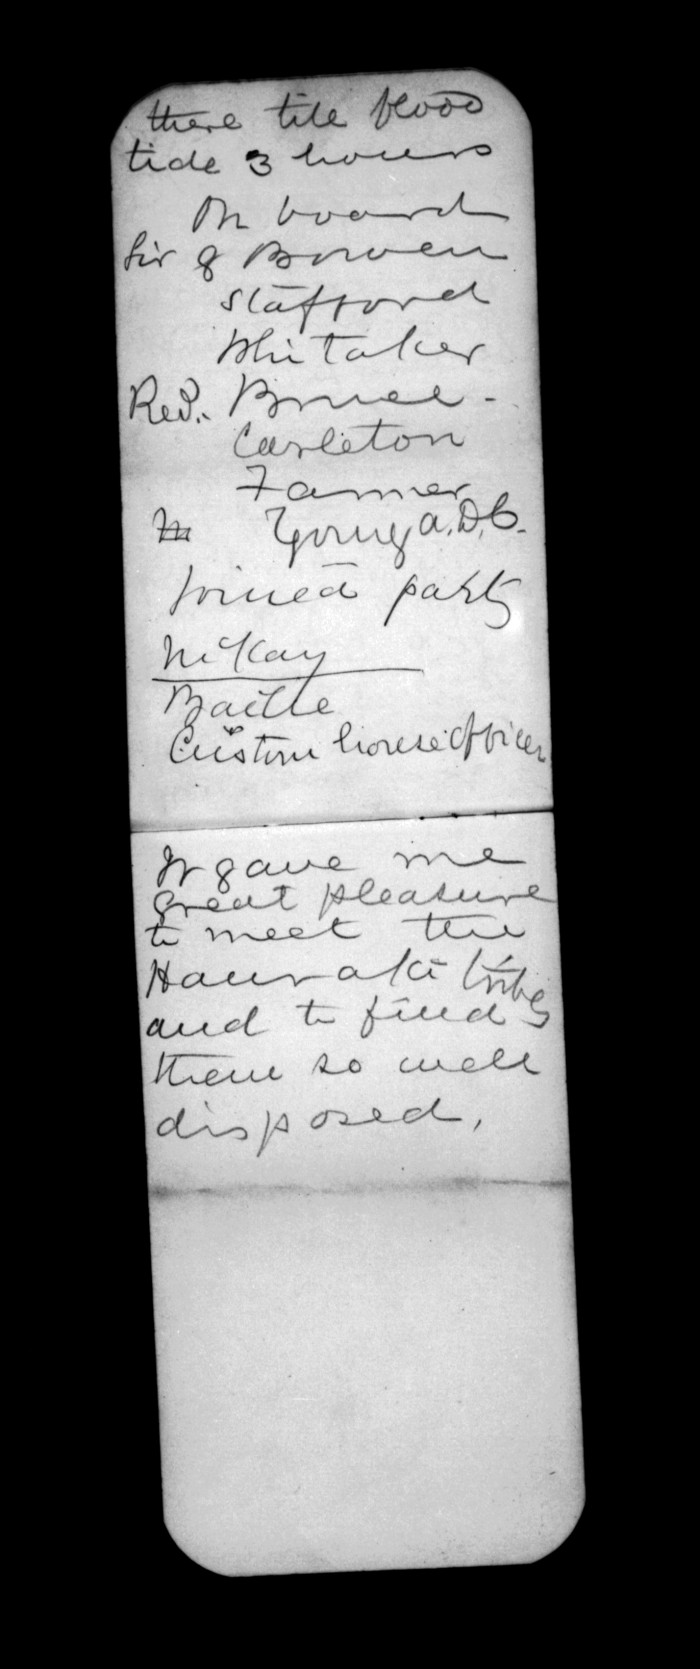 there till flood
tide 3 hours
On board
Sir G Bowen
Stafford
Whitaker
Rev. Bruce -
Carleton
Farmer
M Young A.D.C.
joined party
McKay
Baillie
Custom house officer
It gave me
great pleasure
to meet the
Hauraki tribes
and to find
them so well
disposed,